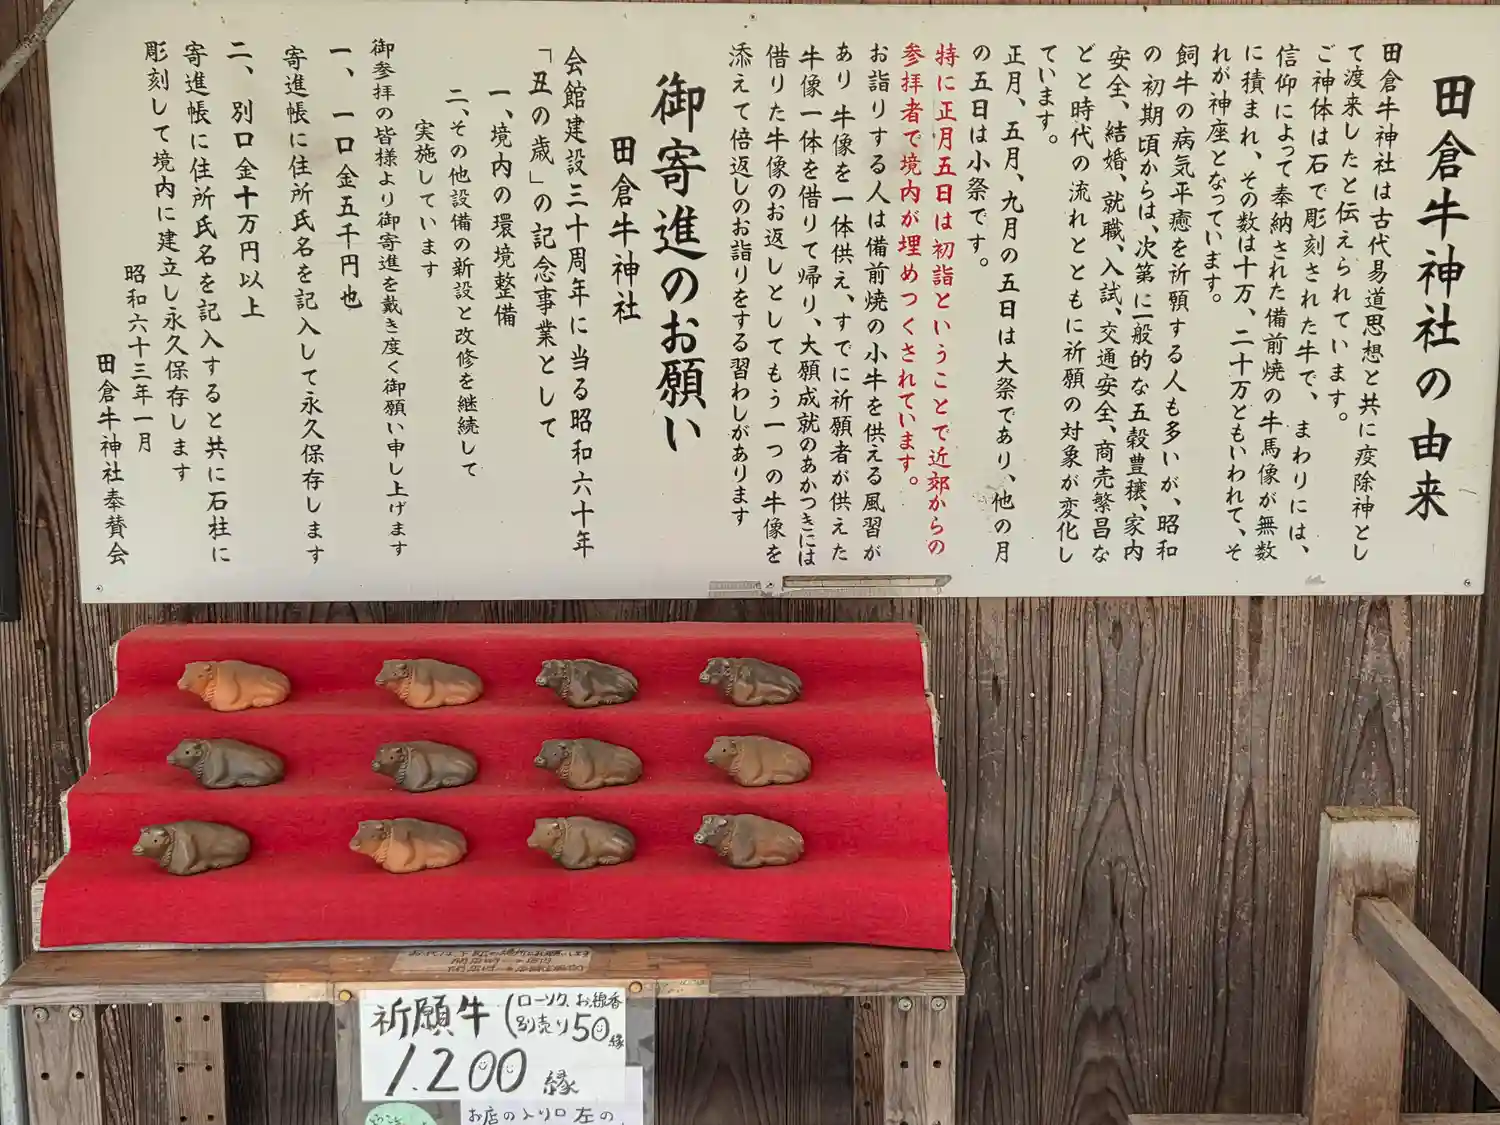 田倉牛神社の由来
田倉牛神社は古代易道思想と共に疫除神とし
て渡来したと伝えられています。
ご神体は石で彫刻された牛で、まわりには、
信仰によって奉納された備前焼の牛馬像が無数
に積まれ、その数は十万、二十万ともいわれて、そ
れが神座となっています。
飼牛の病気平癒を祈願する人も多いが、昭和
の初期頃からは、次第に一般的な五穀豊穣、家内
安全、結婚、就職、入試、交通安全、商売繁昌な
どと時代の流れとともに祈願の対象が変化し
ています。
正月、五月、九月の五日は大祭であり、他の月
の五日は小祭です。
特に正月五日は初詣ということで近郊からの
参拝者で境内が埋めつくされています。
お詣りする人は備前焼の小牛を供える風習が
あり 牛像を一体供え、すでに祈願者が供えた
牛像一体を借りて帰り、大願成就のあかつきには
借りた牛像のお返しとしてもう一つの牛像を
添えて倍返しのお詣りをする習わしがあります
御寄進のお願い
田倉牛神社
会館建設三十周年に当る昭和六十年
「丑の歳」の記念事業として
一、境内の環境整備
二、その他設備の新設と改修を継続して
実施しています
御参拝の皆様より御寄進を戴き度く御願い申し上げます
一、一口金五千円也
寄進帳に住所氏名を記入して永久保存します
二、別口金十万円以上
寄進帳に住所氏名を記入すると共に石柱に
彫刻して境内に建立し永久保存します
昭和六十三年一月
田倉牛神社奉賛会
祈願牛(ローソク、お線香
別売り50縁
1.200縁
お店の入り口 左の